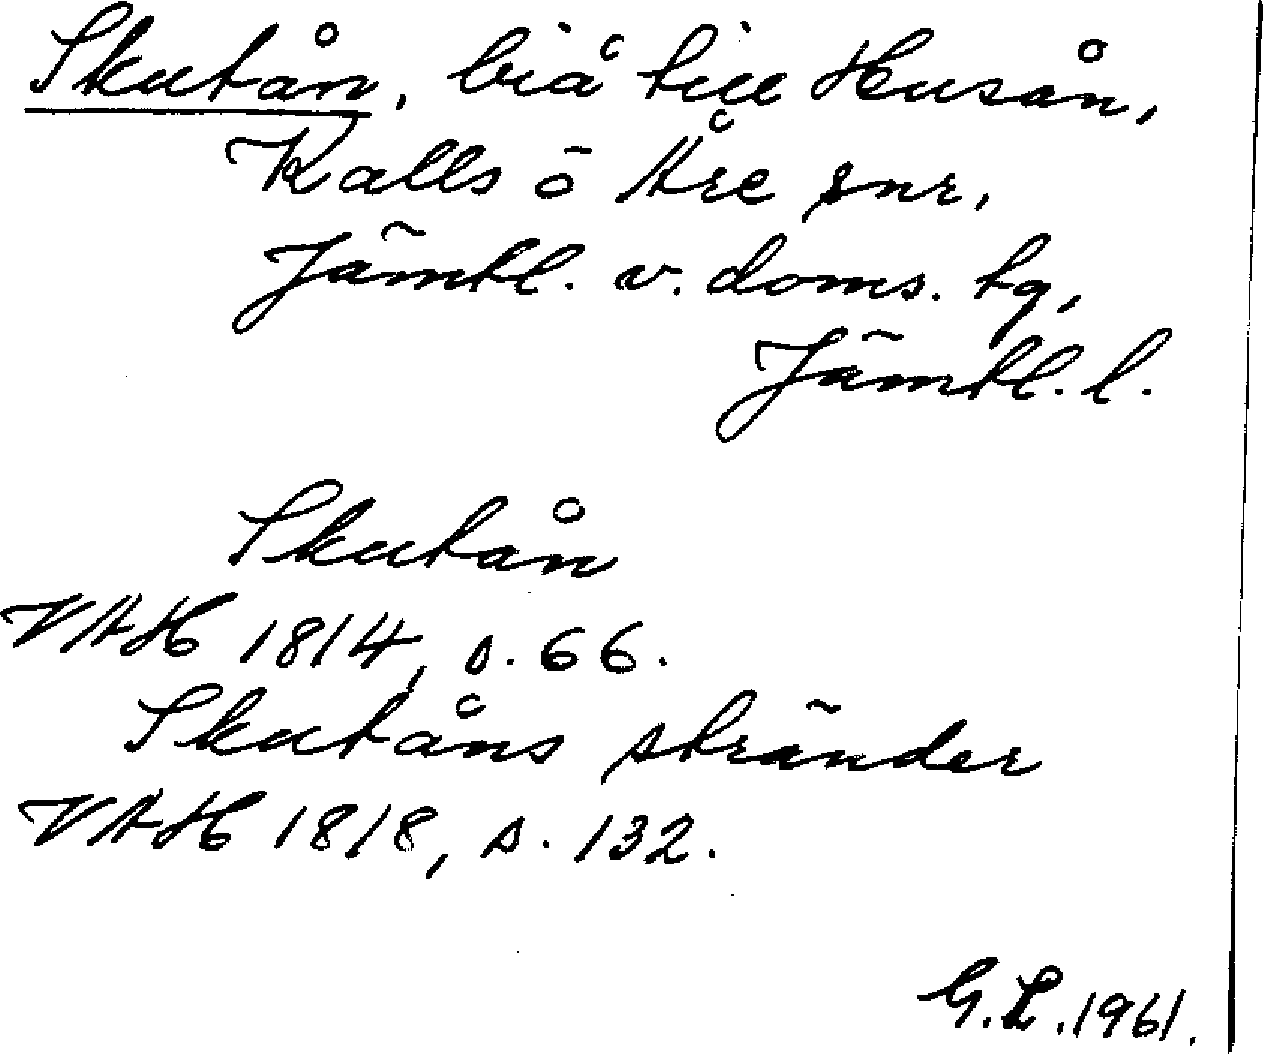 Skutån, biå till Husån,
Kalls o Åre snr,
Jämtl. v. doms. tg,
Jämtl. l.
Skutån
VAH 1814, s. 66.
Skutåns stränder
VAH 1818, s. 132.
G.L. 1961.